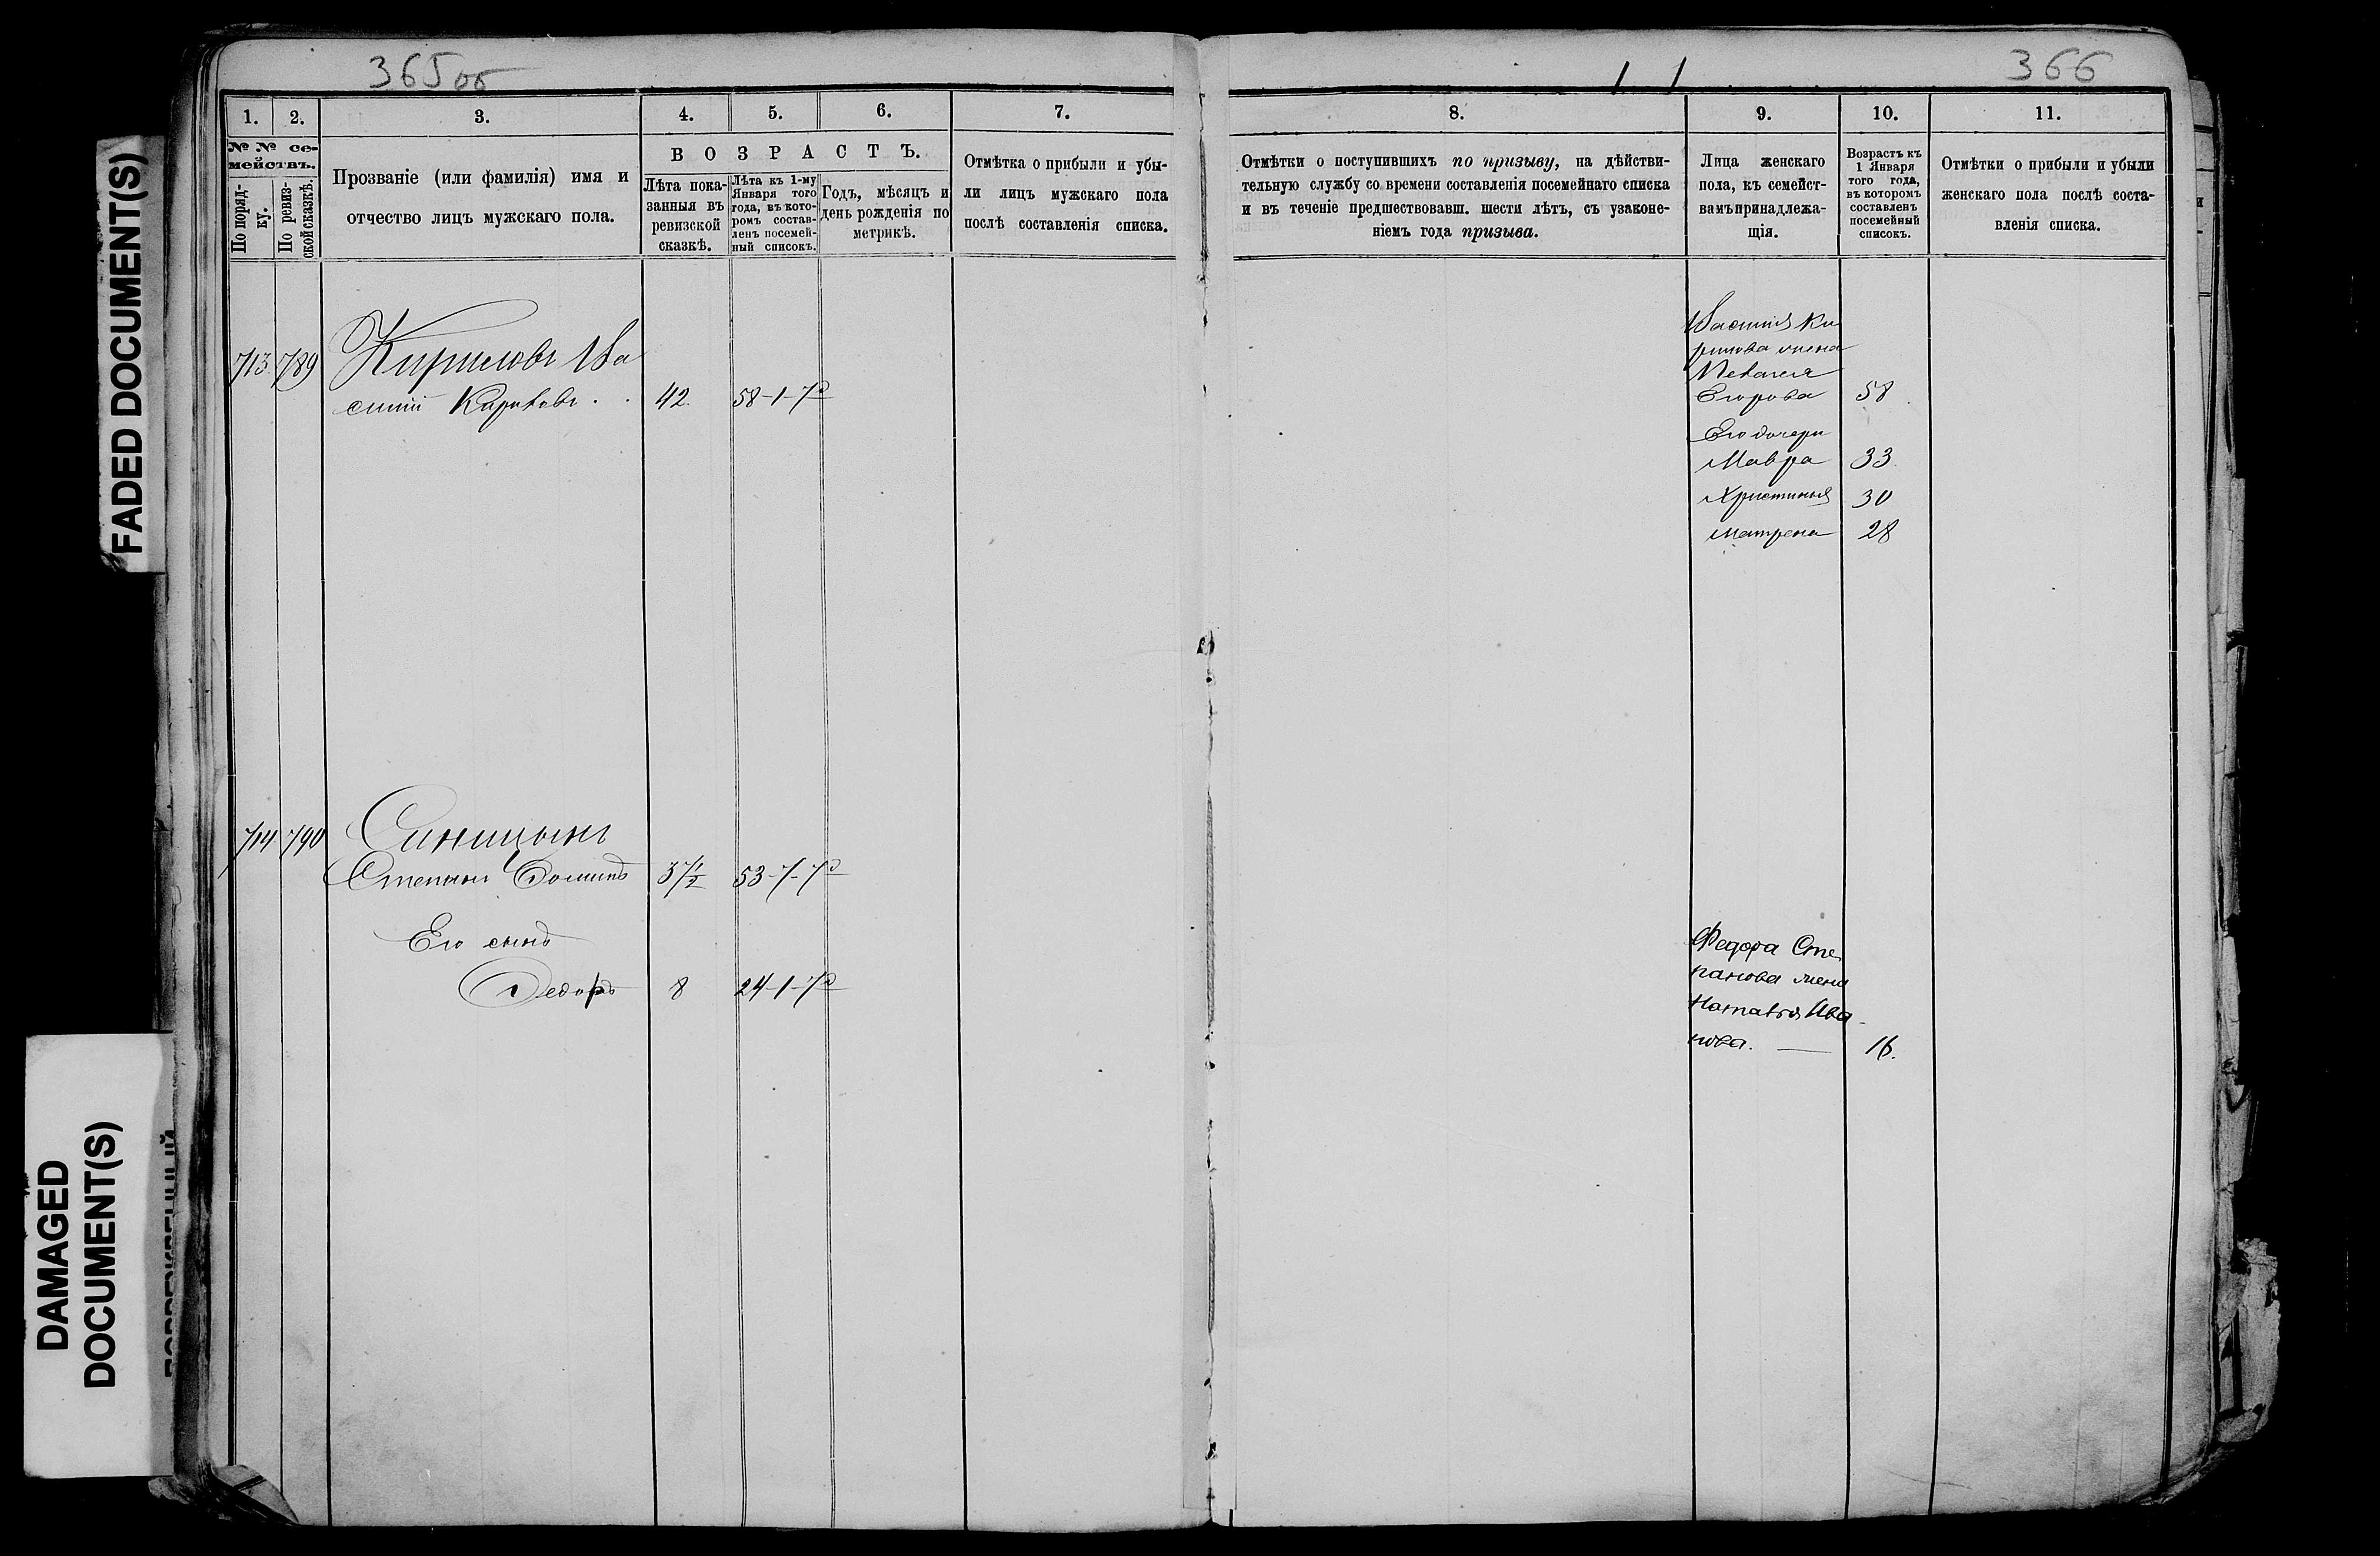 365об
1.
2.
3.
4.
5.
6.
7.
№ № се-
мействъ.
По поряд-
ку.
По ревиз-
ской сказкѣ.
Прозваніе (или фамилія) имя и
отчество лицъ мужскаго пола.
ВОЗРАСТЪ.
Лѣта пока-
занныя въ
ревизской
сказкѣ.
Лѣта къ 1-му
Января того
года, въ кото-
ромъ состав-
ленъ посемей-
ный списокъ.
Годъ, мѣсяцъ и
день рожденія по
метрикѣ.
Отмѣтка о прибыли и убы-
ли лицъ мужскаго пола
послѣ составленія списка.
713 789 Кириловъ Ва
силій 42. 58-1-
714 790 Синицынъ
Степанъ 37½ 53-7-
Его сынъ
Федоръ 8 24-1-
366
8.
9.
10.
11.
Отмѣтки о поступившихъ по призыву, на дѣйстви-
тельную службу со времени составленія посемейнаго списка
и въ теченіе предшествовавш. шести лѣтъ, съ узаконе-
ніемъ года призыва.
Лица женскаго
пола, къ семейст-
вамъ принадлежа-
щія.
Возрастъ къ
1 Января
того года,
въ которомъ
составленъ
посемейный
списокъ.
Отмѣтки о прибыли и убыли
женскаго пола послѣ соста-
вленія списка.
Василія Ки
рилова жена
Пелагея
Егорова 58
Его дочери
Мавра 33.
Христинья 30
Матрена 28
Федора Сте
панова жена
Наталья Ива-
нова. — 16.
FADED DOCUMENT(S)
DAMAGED
DOCUMENT(S)